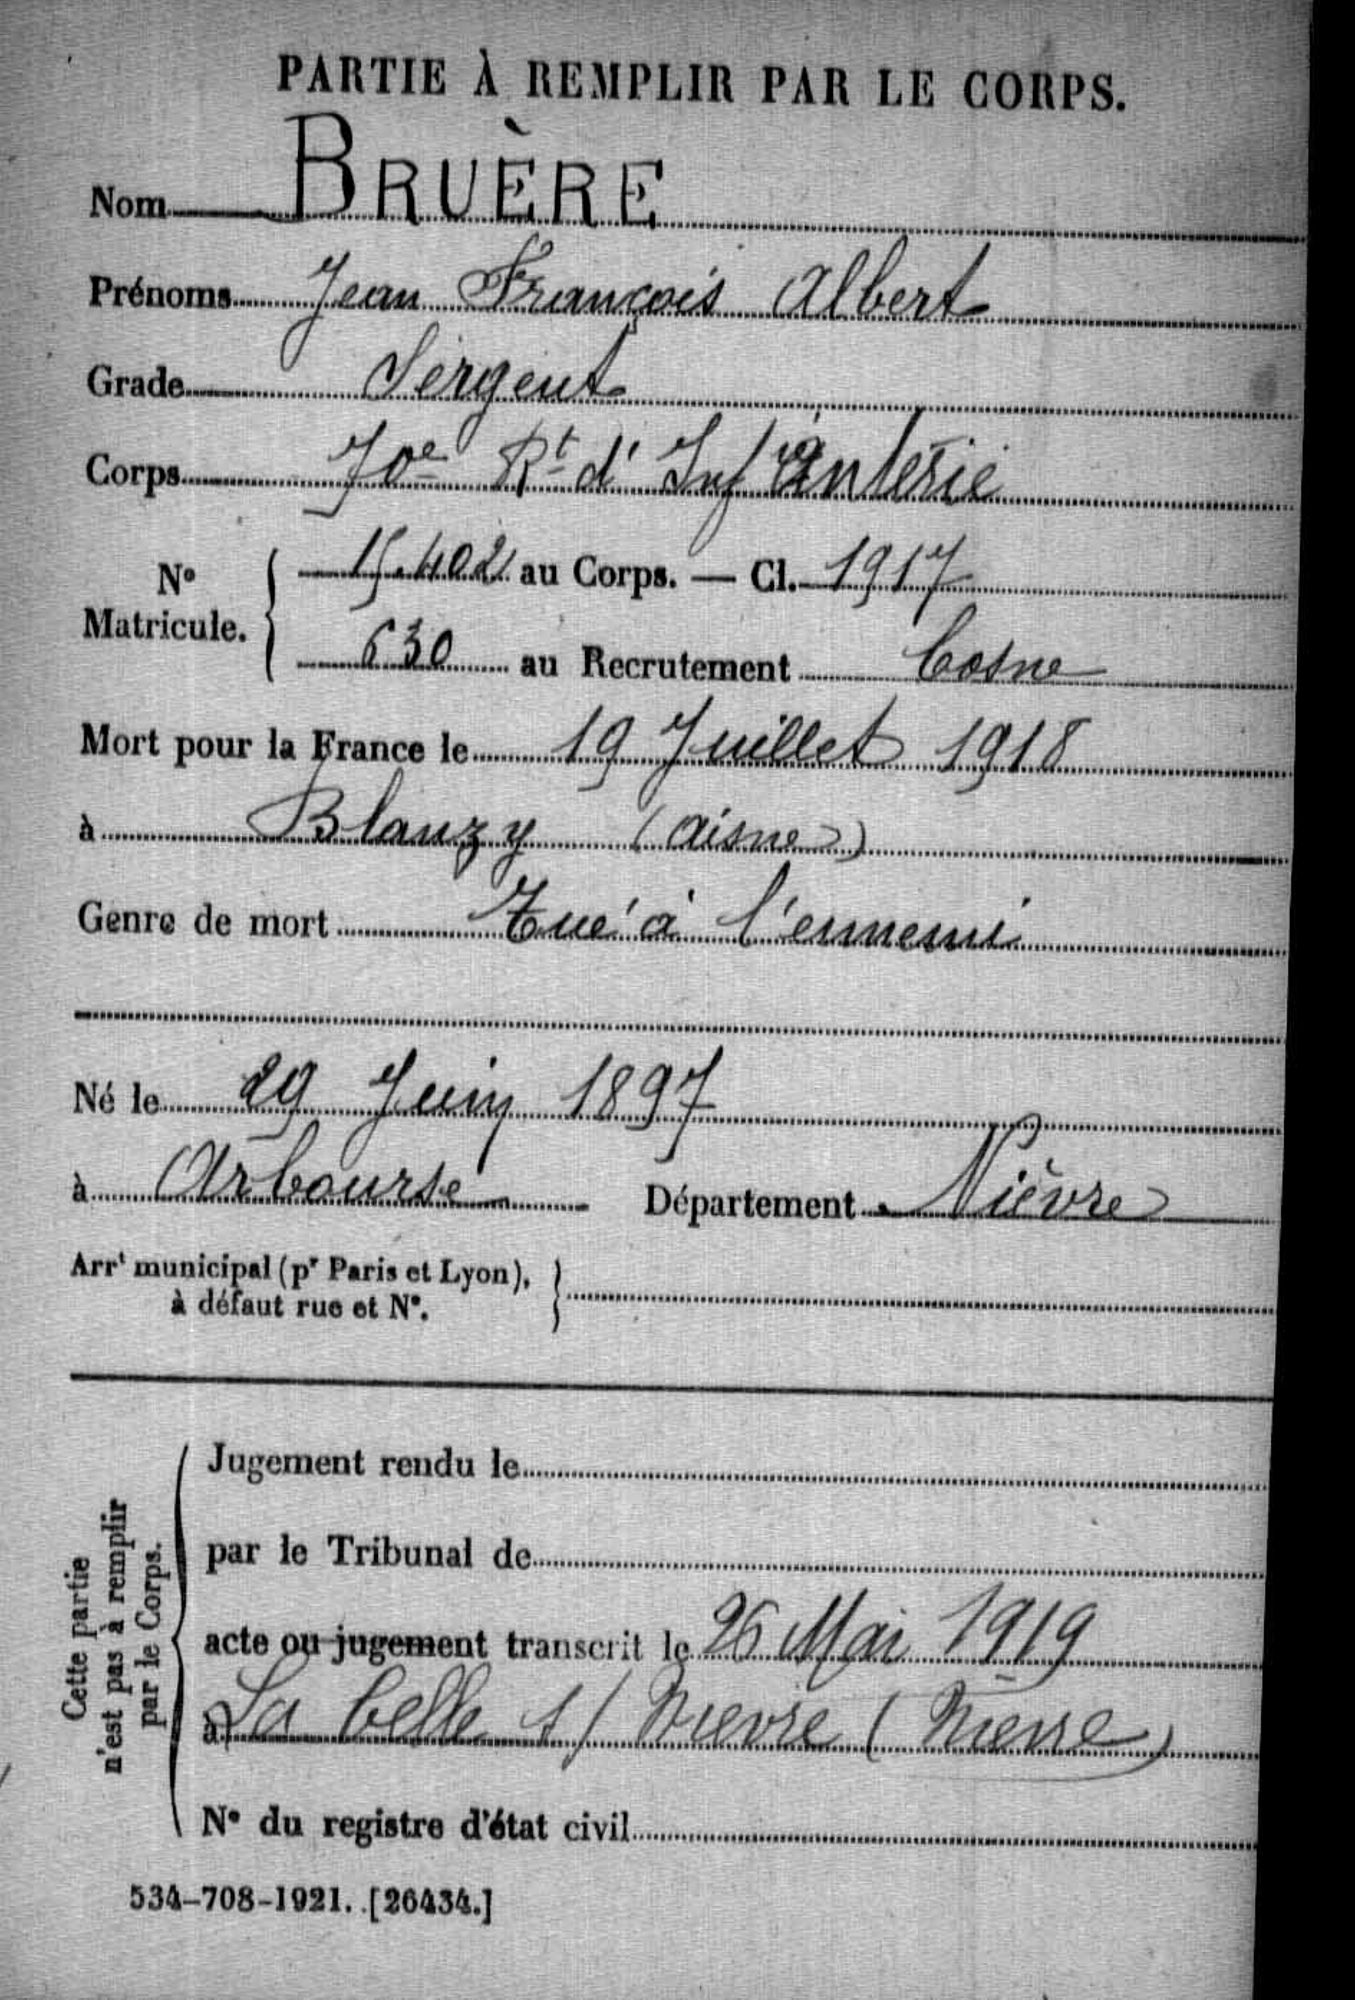 PARTIE À REMPLIR PAR LE CORPS.
Nom BRUÈRE
Prénoms Jean François Albert
Grade Sergent
Corps 70e Rt d'Infanterie
No Matricule. { 15.402 au Corps. — Cl. 1917
630 au Recrutement Cosne
Mort pour la France le 19 Juillet 1918
à Blanzy (Aisne)
Genre de mort Tué à l'ennemi
Né le 29 Juin 1897
à Arbourse Département Nièvre
Arrt municipal (pr Paris et Lyon), }
à défaut rue et No.
Cette partie
n'est pas à remplir
par le Corps.
Jugement rendu le
par le Tribunal de
acte ou jugement transcrit le 26 Mai 1919
à La Celle s/ Nievre (Nievre)
No du registre d'état civil
534-708-1921. [26434.]